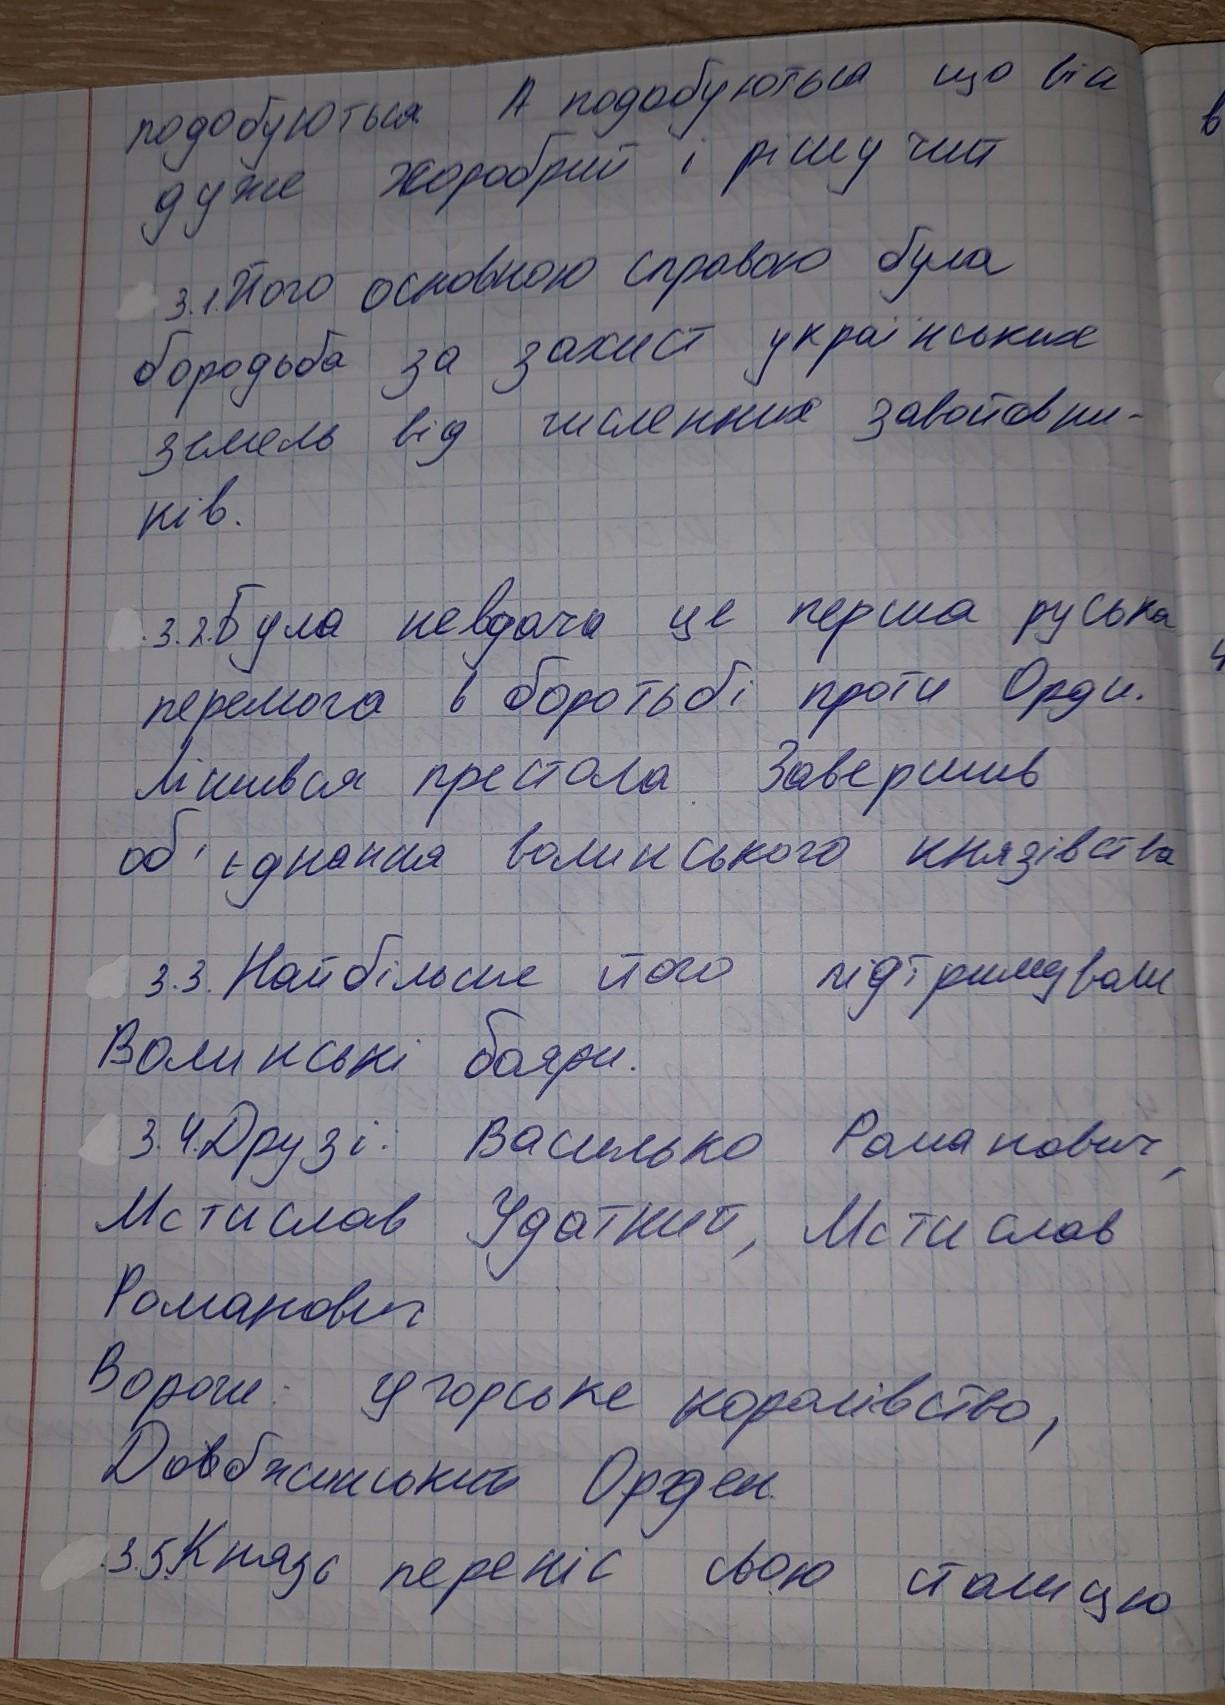 подобуються А подобуються що він
дуже хоробрий і рішучий
3.1.Його основною справою була
бородьба за захист українських
земель від численних завойовни-
ків.
3.2.Була невдача це перша руська
перемога в боротьбі проти Орди.
Лишився престола Завершив
об'єднання волинського князівства
3.3.Найбільше його підтримували
Волинські бояри.
3.4.Друзі: Василько Романович,
Мстислав Удатний, Мстислав
Романович
Вороги: Угорське королівство,
Довбжинський Орден
3.5.Князь переніс свою столицю